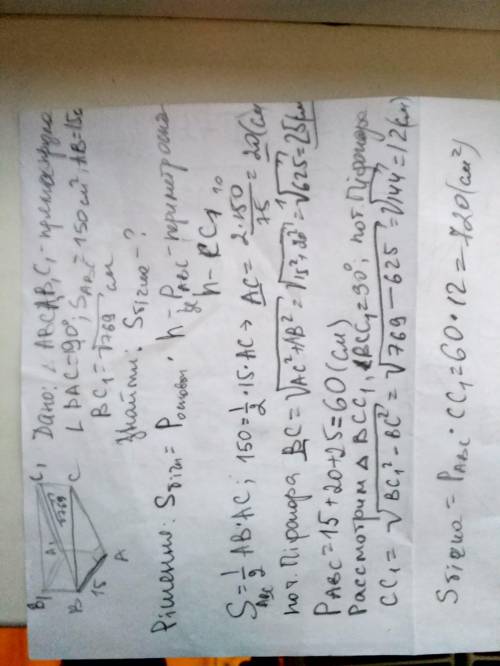 B1 C1
A1
√769
B C
15
A
Дано: △ ABCA1B1C1 - прямая призма
∠BAC=90°; S ABC = 150 см², AB=15 см
BC1=√769 см
Знайти: Sбічна - ?
Рішення: Sбічн = Pосновы · h = де P ABC - периметр основ
h - CC1
S ABC = 1/2 AB·AC; 150 = 1/2 · 15 · AC → AC = 2·150 10 / 15 1 = 20 (см
по т. Піфагора BC = √AC²+AB² = √15²+20² = √625 = 25 (см
P ABC = 15+20+25=60 (см)
Рассмотрим △ BCC1, ∠BCC1=90°; по т. Піфагора
CC1 = √BC1² - BC² = √769 - 625 = √144 = 12 (см)
Sбічна = P ABC · CC1 = 60 · 12 = 720 (см²)